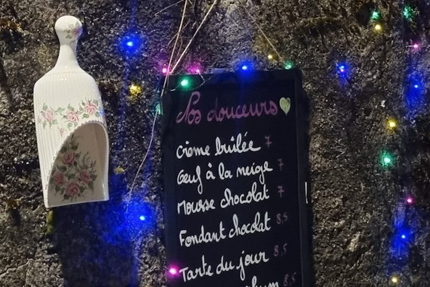 Nos douceurs
Crème brûlée 7
Œuf à la neige 7
Mousse chocolat 7
Fondant chocolat 8,5
Tarte du jour 8,5